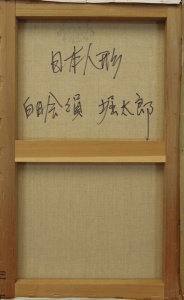 日本人形
白日会員 堀太郎